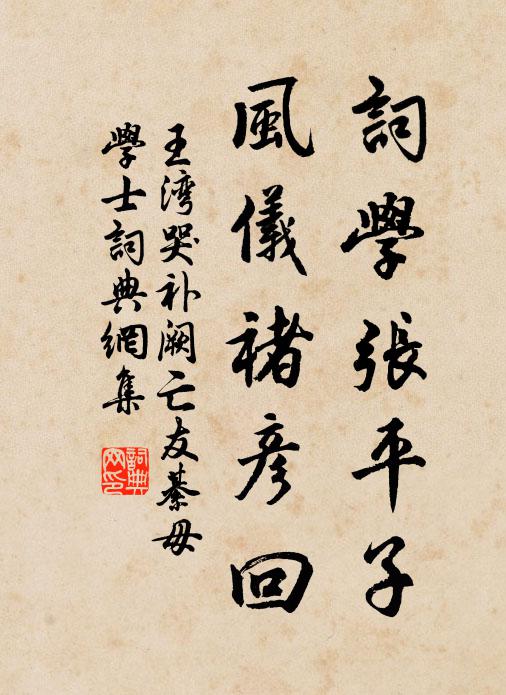 詞學張平子
風儀褚彥回
王湾哭补阙亡友綦毋
學士詞典網集
詞典
网印